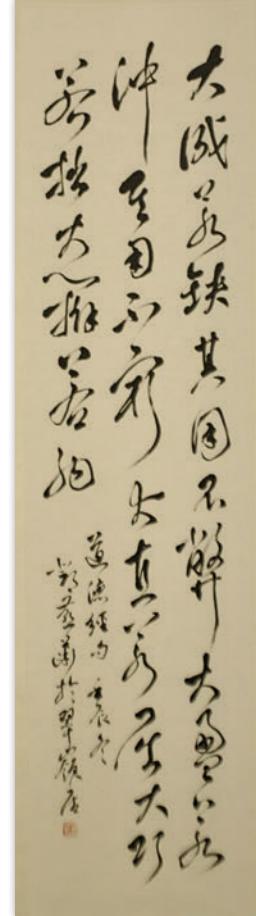 大成若缺其用不弊大盈若
沖其用不窮大直若屈大巧
若拙大辯若訥
道德經句 壬辰冬
於翠嶺居